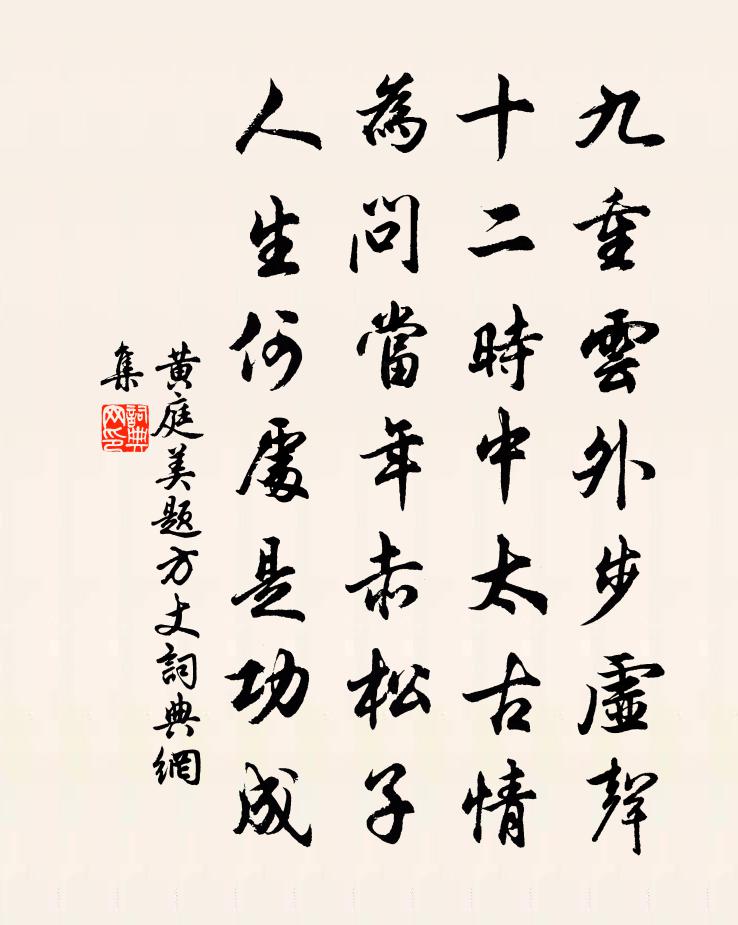 九重雲外步虛聲
十二時中太古情
為問當年赤松子
人生何處是功成
黄庭美題方丈詞典網
集
詞典
网印